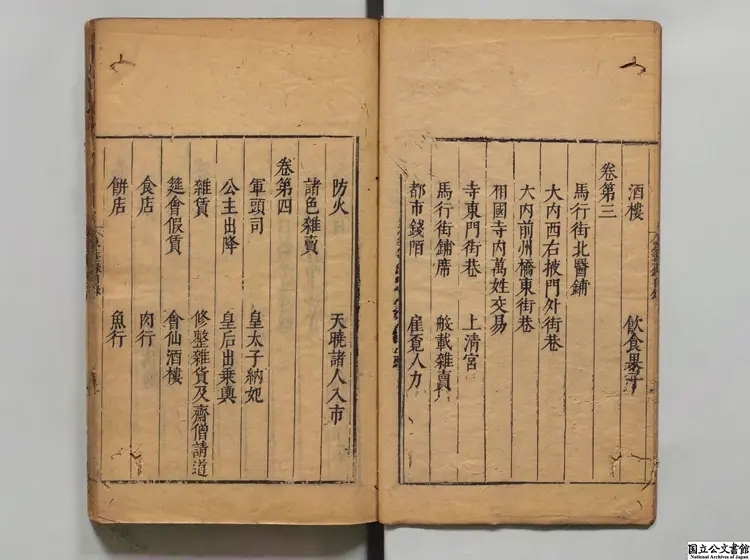 酒樓 飲食果子
卷第三
馬行街北醫鋪
大内西右掖門外街巷
大内前州橋東街巷
相國寺内萬姓交易
寺東門街巷 上清宮
馬行街鋪席 般載雜賣
都市錢陌 雇覓人力
防火 天曉諸人入市
諸色雜賣
卷第四
軍頭司 皇太子納妃
公主出降 皇后出乗輿
雜賃 修整雜貨及齋僧請道
筵會假賃 會仙酒樓
食店 肉行
餅店 魚行
国立公文書館
National Archives of Japan